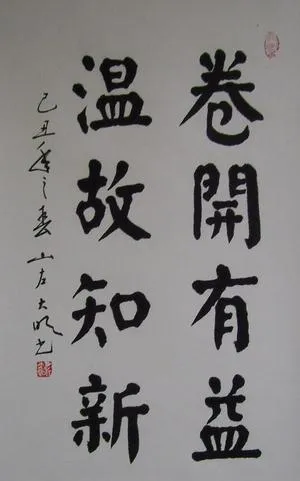 卷開有益
温故知新
己丑年之春山左大明書